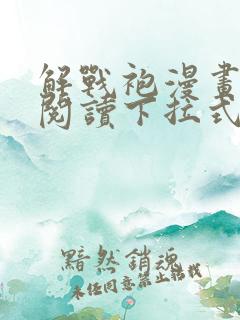 解戰袍漫畫
閱讀下拉式
黯然銷魂
未任同意禁止轉載